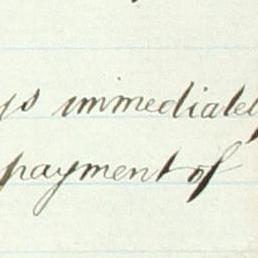 immediately
payment of